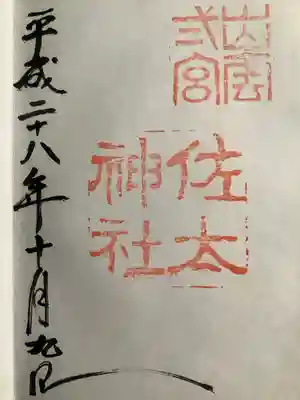 出雲
弎宮
佐太
神社
平成二十八年十月九日